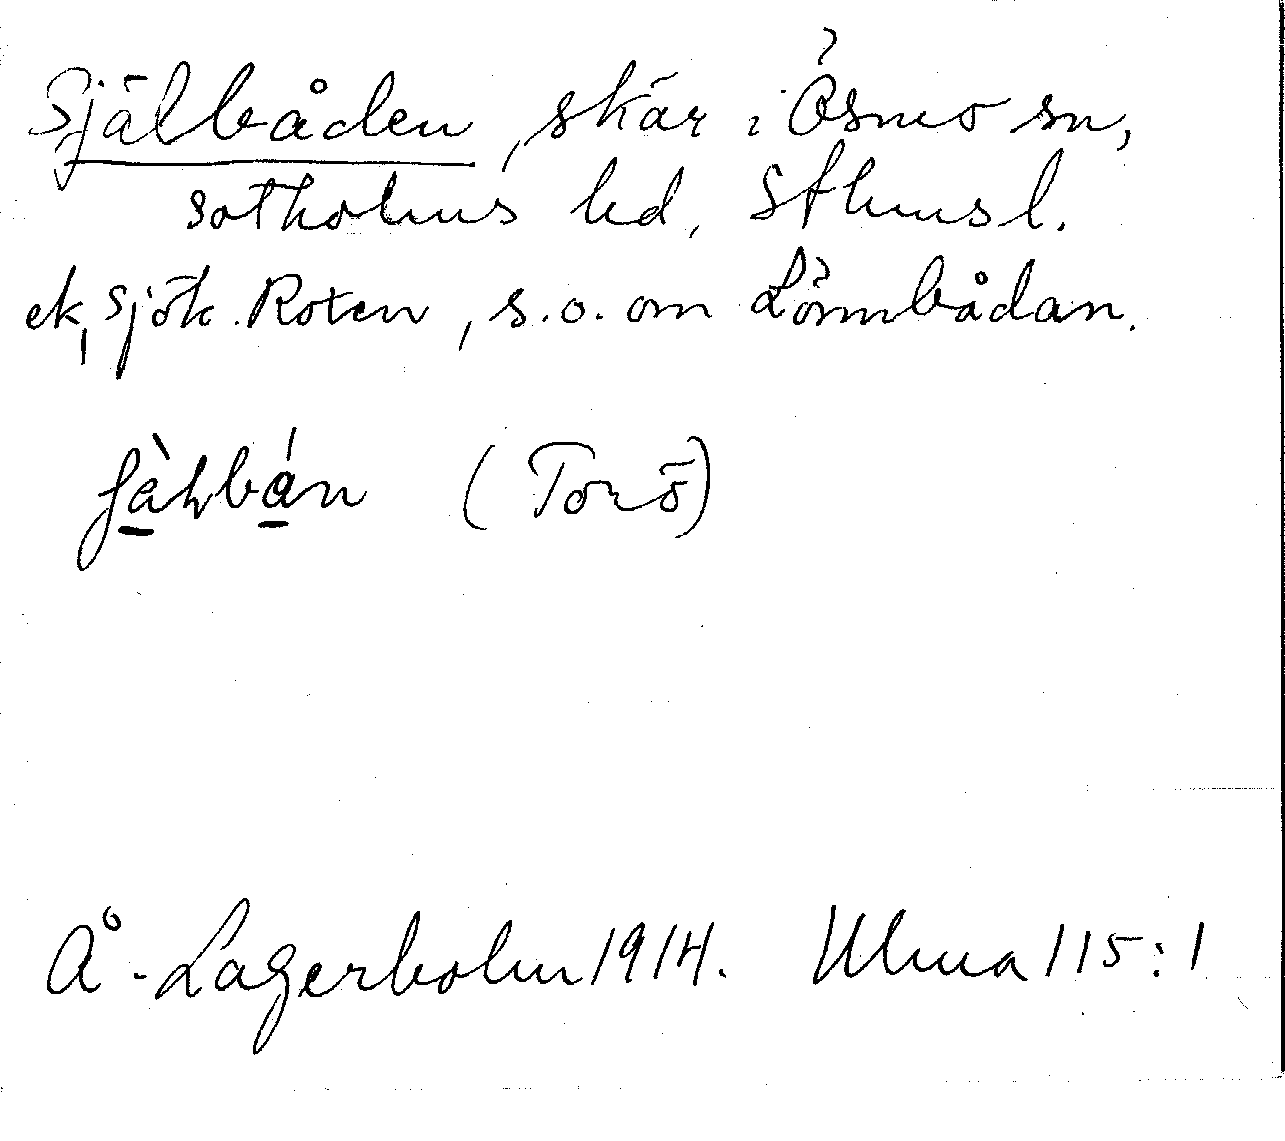 Själbåden, skär i Ösmo sn,
Sotholms hd, Sthms l.
ek, sjök. Roten, s.o. om Lörmbådan.
(Torö)
Å. Lagerholm 1914. Ulma 115:1